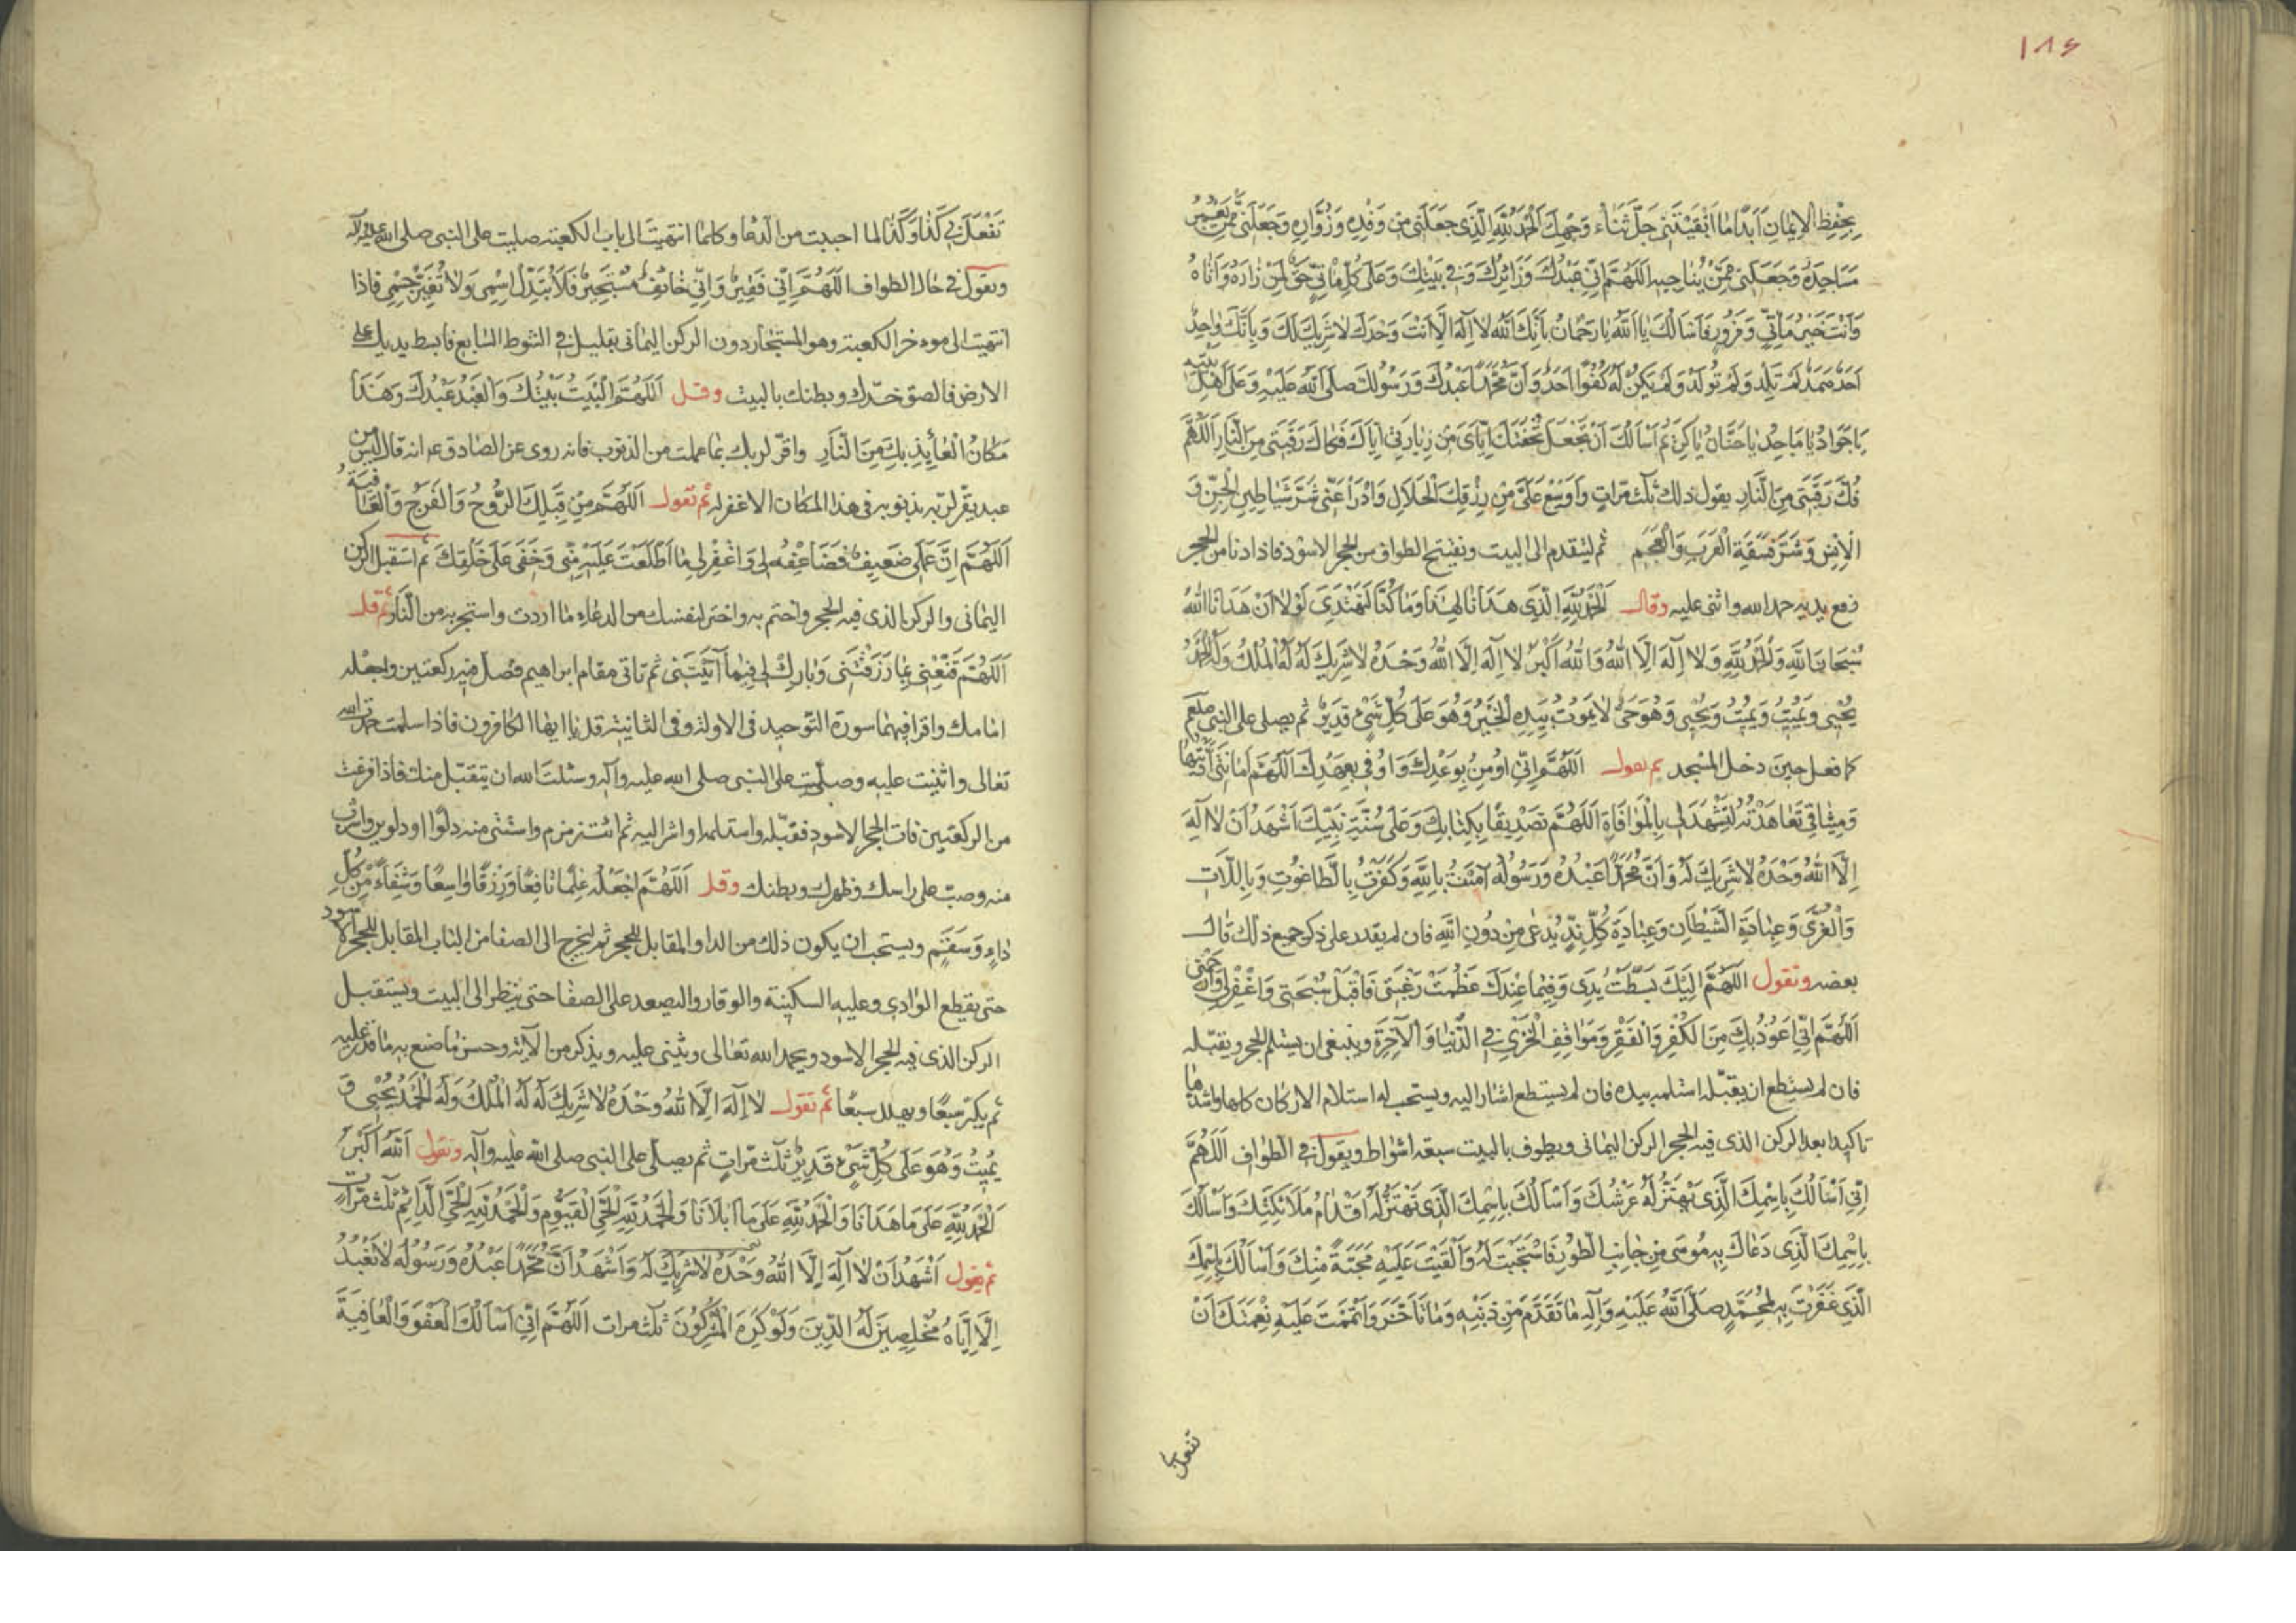 ۱۸۶
بِحِفْظِ الْإِيمَانِ أَبَدًا مَا أَبْقَيْتَنِي جَلَّ ثَنَاءُ وَجْهِكَ اَلْحَمْدُ لِلَّهِ الَّذِي جَعَلَنِي مِنْ وَفْدِهِ وَزُوَّارِهِ وَجَعَلَنِي مِمَّنْ يَعْمُرُ
مَسَاجِدَهُ وَجَعَلَنِي مِمَّنْ يُنَاجِيهِ اَللَّهُمَّ إِنِّي عَبْدُكَ وَزَائِرُكَ وَفِي بَيْتِكَ وَعَلَى كُلِّ مَأْتِيٍّ حَقٌّ لِمَنْ زَارَهُ وَأَتَاهُ
وَأَنْتَ خَيْرُ مَأْتِيٍّ وَمَزُورٍ فَأَسْأَلُكَ يَا اَللَّهُ يَا رَحْمَانُ بِأَنَّكَ اللَّهُ لَا إِلَهَ إِلَّا أَنْتَ وَحْدَكَ لَا شَرِيكَ لَكَ وَبِأَنَّكَ وَاحِدٌ
أَحَدٌ صَمَدٌ لَمْ تَلِدْ وَلَمْ تُولَدْ وَلَمْ يَكُنْ لَهُ كُفُوًا أَحَدٌ وَأَنَّ مُحَمَّدًا عَبْدُكَ وَرَسُولُكَ صَلَّى اللَّهُ عَلَيْهِ وَعَلَى أَهْلِ بَيْتِهِ
يَا جَوَادُ يَا مَاجِدُ يَا حَنَّانُ يَا كَرِيمُ أَسْأَلُكَ أَنْ تَجْعَلَ تُحْفَتَكَ إِيَّايَ مِنْ زِيَارَتِي إِيَّاكَ فَكَاكَ رَقَبَتِي مِنَ النَّارِ اَللَّهُمَّ
فُكَّ رَقَبَتِي مِنَ النَّارِ يقول ذلك ثلث مرات وَأَوْسِعْ عَلَيَّ مِنْ رِزْقِكَ الْحَلَالِ وَادْرَأْ عَنِّي شَرَّ شَيَاطِينِ الْجِنِّ وَ
الْإِنْسِ وَشَرَّ فَسَقَةِ الْعَرَبِ وَالْعَجَمِ ثم ليتقدم الى البيت ويفتتح الطواف من الحجر الاسود فاذا دنا من الحجر
رفع يديه حمد الله واثنى عليه وقال اَلْحَمْدُ لِلَّهِ الَّذِي هَدَانَا لِهَذَا وَمَا كُنَّا لِنَهْتَدِيَ لَوْلَا أَنْ هَدَانَا اللَّهُ
سُبْحَانَ اللَّهِ وَالْحَمْدُ لِلَّهِ وَلَا إِلَهَ إِلَّا اللَّهُ وَاللَّهُ أَكْبَرُ لَا إِلَهَ إِلَّا اللَّهُ وَحْدَهُ لَا شَرِيكَ لَهُ لَهُ الْمُلْكُ وَلَهُ الْحَمْدُ
يُحْيِي وَيُمِيتُ وَيُمِيتُ وَيُحْيِي وَهُوَ حَيٌّ لَا يَمُوتُ بِيَدِهِ الْخَيْرُ وَهُوَ عَلَى كُلِّ شَيْءٍ قَدِيرٌ ثم يصلى على النبى صلعم
كما فعل حين دخل المسجد ثم يقول اَللَّهُمَّ إِنِّي أُومِنُ بِوَعْدِكَ وَأُوفِي بِعَهْدِكَ اَللَّهُمَّ أَمَانَتِي أَدَّيْتُهَا
وَمِيثَاقِي تَعَاهَدْتُهُ لِتَشْهَدَ لِي بِالْمُوَافَاةِ اَللَّهُمَّ تَصْدِيقًا بِكِتَابِكَ وَعَلَى سُنَّةِ نَبِيِّكَ أَشْهَدُ أَنْ لَا إِلَهَ
إِلَّا اللَّهُ وَحْدَهُ لَا شَرِيكَ لَهُ وَأَنَّ مُحَمَّدًا عَبْدُهُ وَرَسُولُهُ آمَنْتُ بِاللَّهِ وَكَفَرْتُ بِالطَّاغُوتِ وَبِاللَّاتِ
وَالْعُزَّى وَعِبَادَةِ الشَّيْطَانِ وَعِبَادَةِ كُلِّ نِدٍّ يُدْعَى مِنْ دُونِ اللَّهِ فان لم يقدر على ذكر جميع ذلك قال
بعضه وتقول اَللَّهُمَّ إِلَيْكَ بَسَطْتُ يَدِي وَفِيمَا عِنْدَكَ عَظُمَتْ رَغْبَتِي فَاقْبَلْ سُبْحَتِي وَاغْفِرْ لِي وَارْحَمْنِي
اَللَّهُمَّ إِنِّي أَعُوذُ بِكَ مِنَ الْكُفْرِ وَالْفَقْرِ وَمَوَاقِفِ الْخِزْيِ فِي الدُّنْيَا وَالْآخِرَةِ وينبغى ان يستلم الحجر ويقبّله
فان لم يستطع ان يقبّله استلمه بيده فان لم يستطع اشار اليه ويستحب له استلام الاركان كلها واشدها
تاكيدا بعد الركن الذى فيه الحجر الركن اليمانى ويطوف بالبيت سبعة اشواط ويقول فى الطواف اَللَّهُمَّ
إِنِّي أَسْأَلُكَ بِاسْمِكَ الَّذِي يَهْتَزُّ لَهُ عَرْشُكَ وَأَسْأَلُكَ بِاسْمِكَ الَّذِي تَهْتَزُّ لَهُ أَقْدَامُ مَلَائِكَتِكَ وَأَسْأَلُكَ
بِاسْمِكَ الَّذِي دَعَاكَ بِهِ مُوسَى مِنْ جَانِبِ الطُّورِ فَاسْتَجَبْتَ لَهُ وَأَلْقَيْتَ عَلَيْهِ مَحَبَّةً مِنْكَ وَأَسْأَلُكَ بِاسْمِكَ
الَّذِي غَفَرْتَ بِهِ لِمُحَمَّدٍ صَلَّى اللَّهُ عَلَيْهِ وَآلِهِ مَا تَقَدَّمَ مِنْ ذَنْبِهِ وَمَا تَأَخَّرَ وَأَتْمَمْتَ عَلَيْهِ نِعْمَتَكَ أَنْ
تفعل
تَفْعَلَ بِي كَذَا وَكَذَا لما احببت من الدعا وكلما انتهيت الى باب الكعبة صليت على النبى صلى الله عليه وآله
وتقول فى حال الطواف اَللَّهُمَّ إِنِّي فَقِيرٌ وَإِنِّي خَائِفٌ مُسْتَجِيرٌ فَلَا تُبَدِّلْ اسْمِي وَلَا تُغَيِّرْ جِسْمِي فاذا
انتهيت الى موءخر الكعبة وهو المستجار دون الركن اليمانى بقليل فى الشوط السابع فابسط يديك على
الارض فالصق خدّك وبطنك بالبيت وقل اَللَّهُمَّ الْبَيْتُ بَيْتُكَ وَالْعَبْدُ عَبْدُكَ وَهَذَا
مَكَانُ الْعَائِذِ بِكَ مِنَ النَّارِ واقرّ لربك بما عملت من الذنوب فانه روى عن الصادق ع انه قال ليس من
عبد يقرّ لربّه بذنوبه فى هذا المكان الا غفر له ثم تقول اَللَّهُمَّ مِنْ قِبَلِكَ الرَّوْحُ وَالْفَرَجُ وَالْعَافِيَةُ
اَللَّهُمَّ إِنَّ عَمَلِي ضَعِيفٌ فَضَاعِفْهُ لِي وَاغْفِرْ لِي مَا اطَّلَعْتَ عَلَيْهِ مِنِّي وَخَفِيَ عَلَى خَلْقِكَ ثم استقبل الركن
اليمانى والركن الذى فيه الحجر واختم به واختر لنفسك من الدعاء ما اردت واستجر به من النار ثم قل
اَللَّهُمَّ قَنِّعْنِي بِمَا رَزَقْتَنِي وَبَارِكْ لِي فِيمَا آتَيْتَنِي ثم تاتى مقام ابراهيم فصل فيه ركعتين واجعله
امامك واقرا فيهما سورة التوحيد فى الاولة وفى الثانية قل يا ايها الكافرون فاذا سلمت حمدت الله
تعالى واثنيت عليه وصلّيت على النبى صلى الله عليه وآله وسئلت الله ان يتقبّل منك فاذا فرغت
من الركعتين فات الحجر الاسود فقبّله واستلمه او اشر اليه ثم ائت زمزم واستق منه دلوا او دلوين واشرب
منه وصبّ على راسك وظهرك وبطنك وقل اَللَّهُمَّ اجْعَلْهُ عِلْمًا نَافِعًا وَرِزْقًا وَاسِعًا وَشِفَاءً مِنْ كُلِّ
دَاءٍ وَسَقَمٍ ويستحب ان يكون ذلك من الدلو المقابل للحجر ثم ليخرج الى الصفا من الباب المقابل للحجر الاسود
حتى يقطع الوادى وعليه السكينة والوقار واليصعد على الصفا حتى ينظر الى البيت ويستقبل
الركن الذى فيه الحجر الاسود ويحمد الله تعالى ويثنى عليه ويذكر من آلائه وحسن ما صنع به ما قدر عليه
ثم يكبّر سبعًا ويهلل سبعًا ثم تقول لَا إِلَهَ إِلَّا اللَّهُ وَحْدَهُ لَا شَرِيكَ لَهُ لَهُ الْمُلْكُ وَلَهُ الْحَمْدُ يُحْيِي وَ
يُمِيتُ وَهُوَ عَلَى كُلِّ شَيْءٍ قَدِيرٌ ثلث مرّات ثم يصلّى على النبى صلى الله عليه وآله وتقول اَللَّهُ أَكْبَرُ
اَلْحَمْدُ لِلَّهِ عَلَى مَا هَدَانَا وَالْحَمْدُ لِلَّهِ عَلَى مَا أَبْلَانَا وَالْحَمْدُ لِلَّهِ الْحَيِّ الْقَيُّومِ وَالْحَمْدُ لِلَّهِ الْحَيِّ الدَّائِمِ ثلث مرّات
ثم يقول أَشْهَدُ أَنْ لَا إِلَهَ إِلَّا اللَّهُ وَحْدَهُ لَا شَرِيكَ لَهُ وَأَشْهَدُ أَنَّ مُحَمَّدًا عَبْدُهُ وَرَسُولُهُ لَا نَعْبُدُ
إِلَّا إِيَّاهُ مُخْلِصِينَ لَهُ الدِّينَ وَلَوْ كَرِهَ الْمُشْرِكُونَ ثلث مرات اَللَّهُمَّ إِنِّي أَسْأَلُكَ الْعَفْوَ وَالْعَافِيَةَ